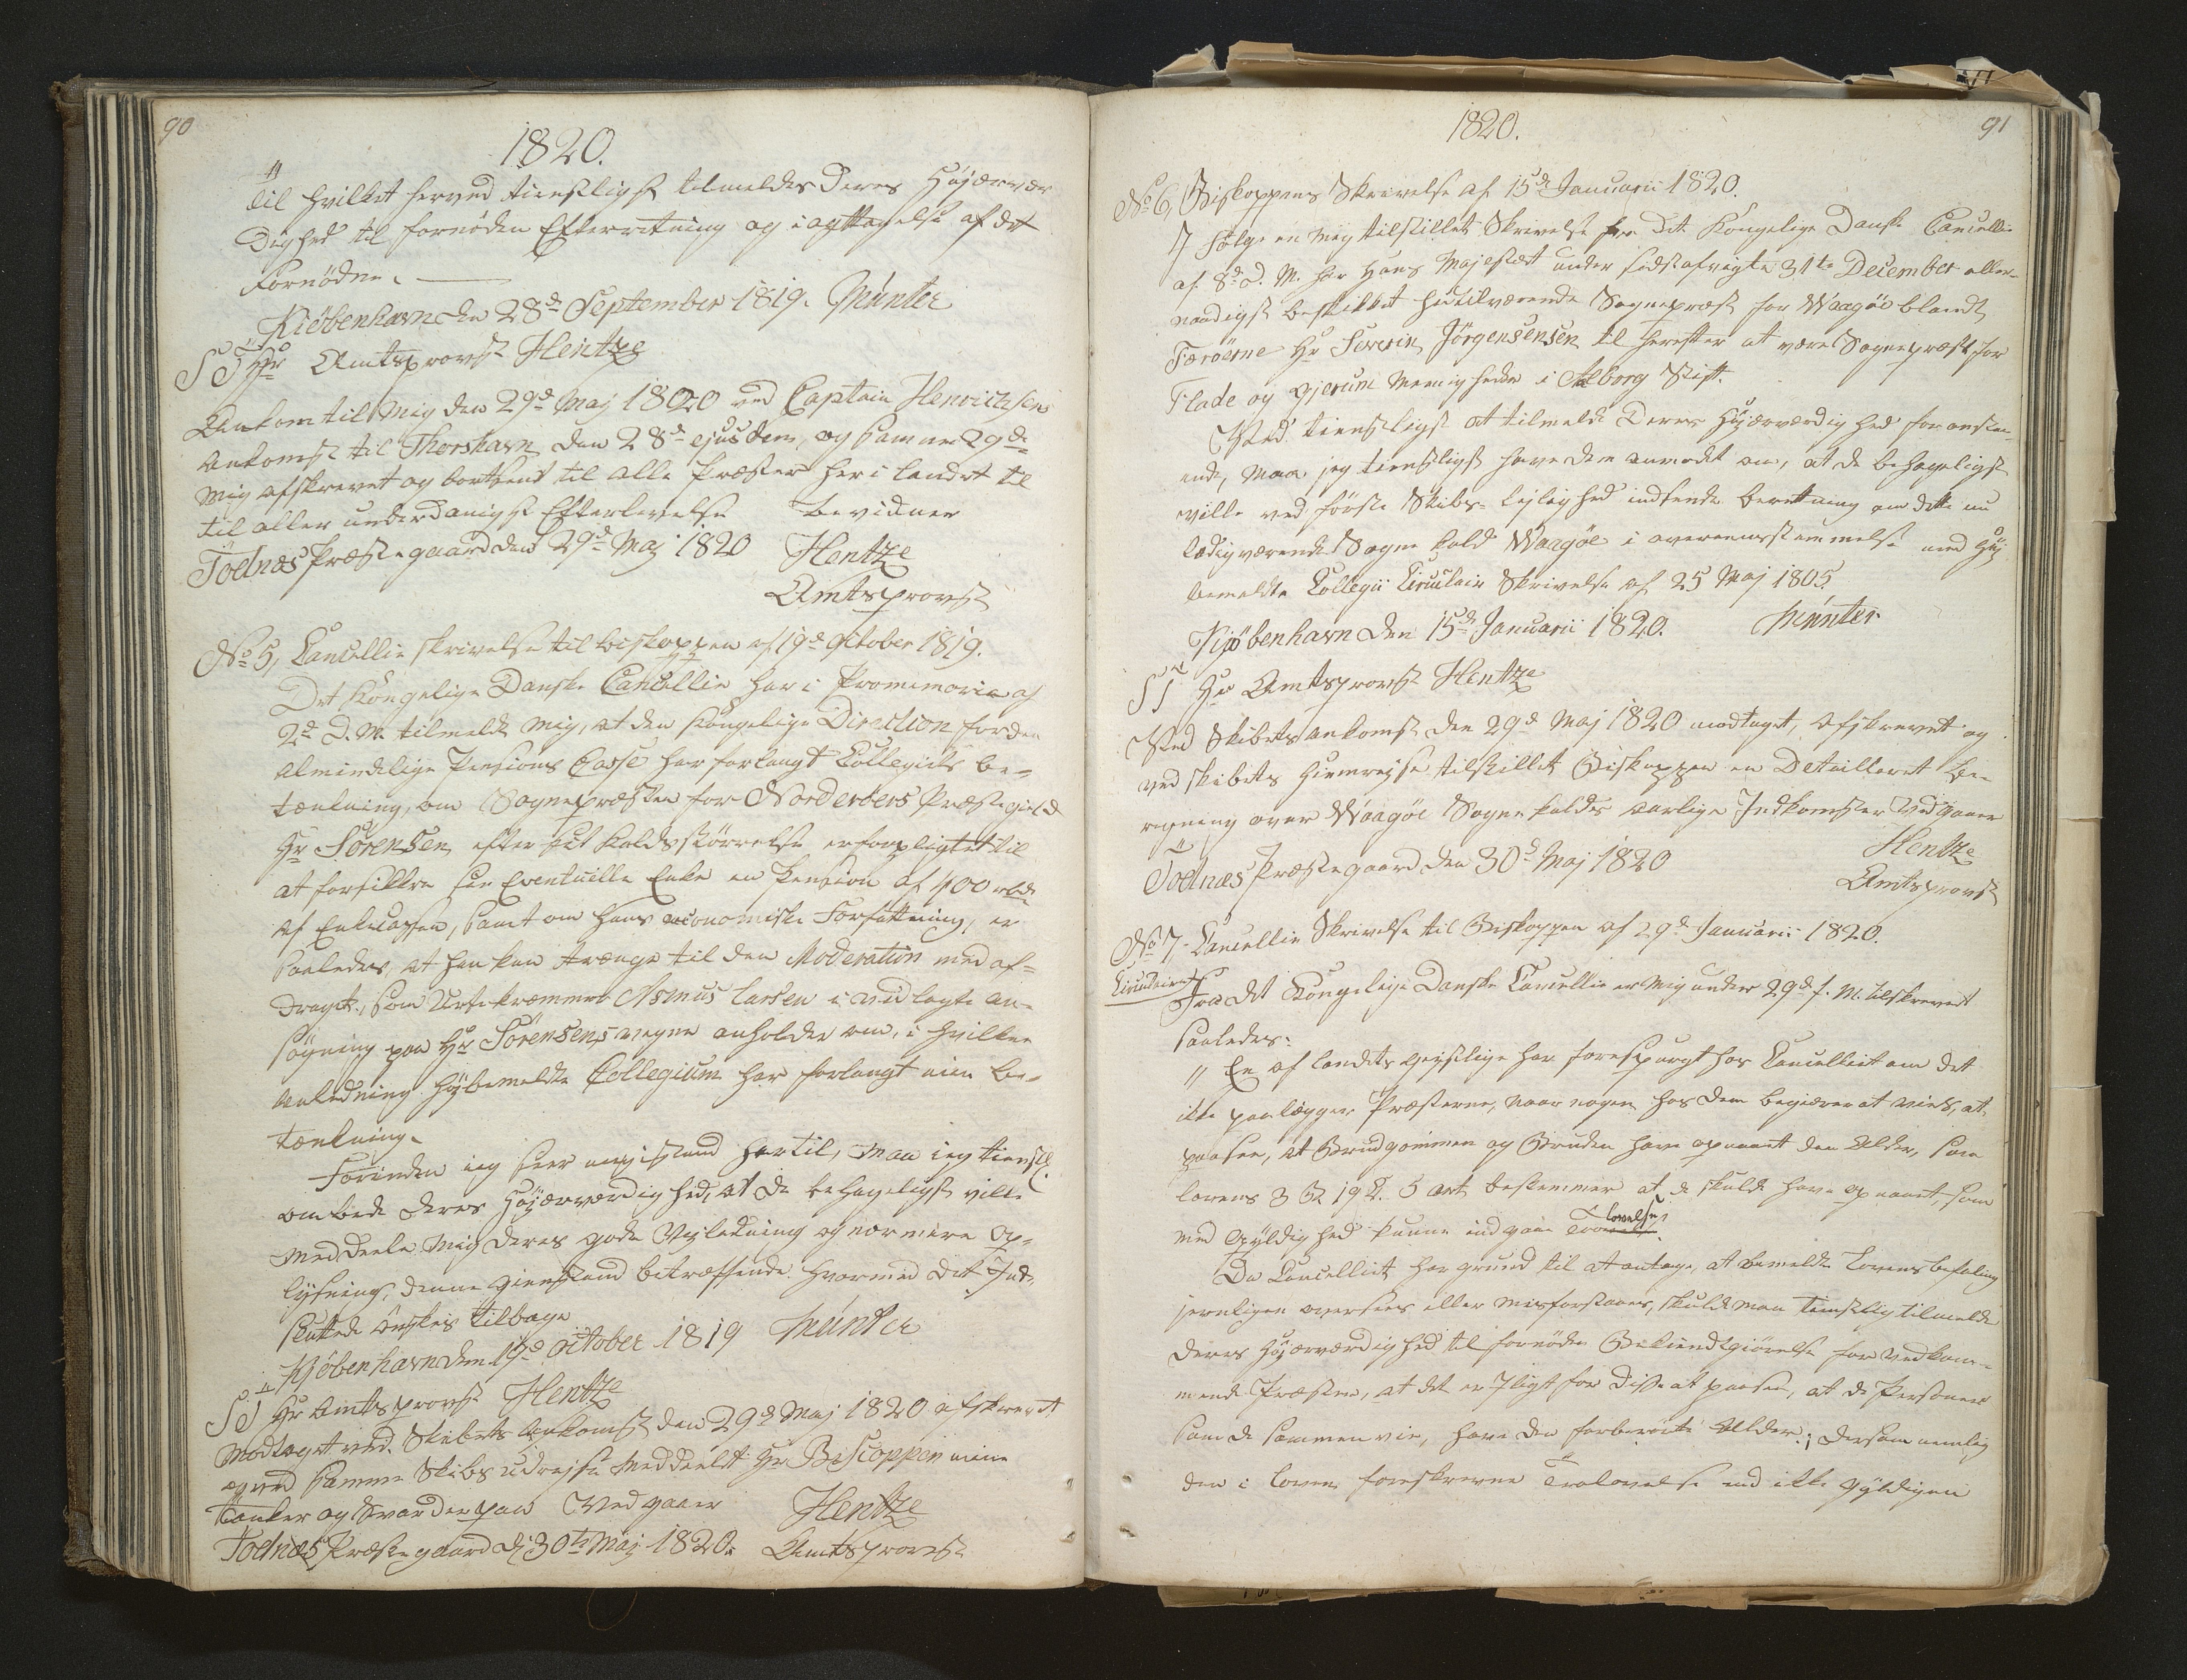 90
1820.
til hvilket herved tienstligst tilmeldes Deres Højærvær
dighed til fornöden Efterretning og iagttagelse af det
Fornödne.
Kiöbenhavn den 28de September 1819. Münter
S T Hr Amtsprovst Hentze
Ankom til mig den 29de Maj 1820 ved Captain Henrichsens
Ankomst til Thorshavn den 28de ejusdem, og samme 29de
mig afskrevet og bortsent til alle Præster her i landet til
til aller underdanigst Efterlevelse bevidner
Todnæs Præstegaard den 29de Maj 1820 Hentze
Amtsprovst
No 5, Cancellie skrivelse til biskoppen af 19de October 1819.
Det Kongelige Danske Cancellie har i Promemoria af
2de D. M. tilmeldt mig, at den Kongelige Direction for den
Almindelige Pensions Casse har forlangt Collegiets be-
tænkning, om Sognepræsten for Norderöers Præstegield
Hr Sörensen efter sit Kalds störrelse er forpligtet til
at forsikkre sin Eventuelle Enke en Pension af 400 rbd
af Enkecassen, samt om hans oeconomiske Forfatning, er
saaledes, at han kan trænge til den Moderation med af-
draget, som Urtekræmmer Asmus Larsen i vedlagte an-
sögning paa Hr Sörensens vegne anholder om, i hvilken
Anledning höybemeldte Collegium har forlangt min be-
tænkning.
Forinden ieg seer mig istand hertil, maa ieg tienstl.
ombede Deres Höjærværdighed, at De behageligst ville
meddeele mig deres gode Veyledning og nærmere Op-
lysning, denne gienstand betræffende. hvormed det Ind-
sluttede önskes tilbage
Kjöbenhavn den 19de October 1819 Münter
S T Hr Amtsprovst Hentze
Modtaget ved Skibets Ankomst den 29de Maj 1820 afskrevet
og ved samme Skibs udrejse meddeelt Hr Biscoppen mine
Tanker og Svar derpaa Vedgaaer Hentze
Todnæs Præstegaard d 30te Maj 1820. Amtsprovst
91
1820.
No 6, Biskoppens Skrivelse af 15de Januarii 1820.
I Fölge en mig tilstillet Skrivelse fra det Kongelige Danske Cancellie
af 8de D. M. har Hans Majestæt under sidstafvigte 31te December aller-
naadigst beskikket hidtilværende Sognepræst for Waagöe blandt
Færöerne Hr Severin Jörgensensen til herefter at være Sognepræst for
Flade og Gjerum Menigheder i Aalborg Stift.
Ved tienstligst at tilmelde Deres Höjærværdighed foranstaa-
ende, maa jeg tienstligst have dem anmodet om, at De behageligst
ville ved förste Skibs-lejlighed indsende beretning om dette nu
ledigværende Sogne kald Waagöe i overeensstemmelse med Höj
bemeldte Collegii Circulair Skrivelse af 25 Maj 1805.
Kjöbenhavn den 15de Januarii 1820. Münter
S T Hr Amtsprovst Hentze
Ved Skibets ankomst den 29de Maj 1820 modtaget, afskrevet og
ved skibets hiemrejse tilstillet Biskoppen en Detailleret be-
regning over Waagöe Sogne kaldes aarlige Indkomster Vedgaaer
Todnæs Præstegaard den 30te Maj 1820 Hentze
Amtsprovst
No 7. Cancellie Skrivelse til Biskoppen af 29de Januarii 1820.
Circulaire
Fra det Kongelige Danske Cancellie er mig under 29de f. M. tilskrevet
saaledes:
" En af landets geistlige har forespurgt hos Cancelliet om det
ikke paalegges Præsterne, naar nogen hos dem begierer at vies, at
paasee, at Brudgommen og Bruden have opnaaet den Alder, som
lovens 3 B. 19 C. 5 Art. bestemmer at de skulde have opnaaet, som
med Gyldighed kunne indgaae Trolovelse.
Da Cancelliet har grund til at antage, at bemeldte Lovens befaling
jevnligen oversees eller misforstaaes, skulde man tienstligst tilmelde
Deres Höjærværdighed til fornöden Bekiendtgiörelse for Vedkom-
mende Præster, at det er Pligt for disse at paasee, at de Personer
som de sammenvie, have den forberörte Alder; dersom nemlig
den i Loven foreskrevne Trolovelse end ikke gyldigen